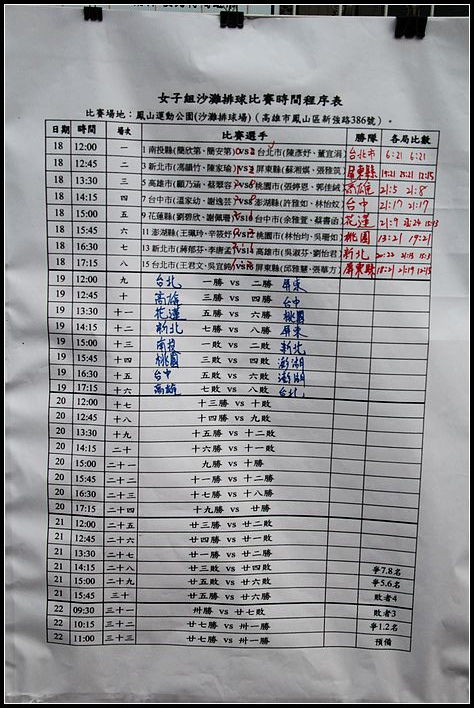 女子組沙灘排球比賽時間程序表
比賽場地：鳳山運動公園(沙灘排球場)（高雄市鳳山區新強路386號）。
日期 時間 場次 比賽選手 勝隊 各局比數
18 12:00 一 1 南投縣(簡欣第、簡安第) 2 台北市(陳彥妤、董宜涓) 台北市 6:21 6:21
18 12:45 二 3 新北市(馮韻竹、陳家瑜) 屏東縣(蘇湘媖、張雅筑) 屏東縣
18 13:30 三 5 高雄市(顧乃涵、蔡翠容) 桃園市(張婷恩、郭佳絨) 高雄 21:5 21:8
18 14:15 四 7 台中市(溫家緰、謝逸芸) 8 澎湖縣(許雅如、林怡妏) 台中 21:17 21:17
18 15:00 五 9 花蓮縣(劉碧欣、謝佩珊) 10 台中市(余雅萱、蔡書函) 花蓮
18 15:45 六 11 澎湖縣(王珮玲、辛筱妤) 桃園市(林怡均、吳珊如) 桃園 13:21 19:21
18 16:30 七 13 新北市(蔣郁芬、李唐孟) 高雄市(吳淑芬、劉怡君) 新北
18 17:15 八 15 台北市(王君文、吳宜純) 屏東縣(邱雅慧、張華方) 屏東縣
19 12:00 九 台北 一勝 vs 二勝 屏東
19 12:45 十 高雄 三勝 vs 四勝 台中
19 13:30 十一 花蓮 五勝 vs 六勝 桃園
19 14:15 十二 新北 七勝 vs 八勝 屏東
19 15:00 十三 南投 一敗 vs 二敗 新北
19 15:45 十四 桃園 三敗 vs 四敗 澎湖
19 16:30 十五 台中 五敗 vs 六敗 澎湖
19 17:15 十六 高雄 七敗 vs 八敗 台北
20 12:00 十七 十三勝 vs 十敗
20 12:45 十八 十四勝 vs 九敗
20 13:30 十九 十五勝 vs 十二敗
20 14:15 二十 十六勝 vs 十一敗
20 15:00 二十一 九勝 vs 十勝
20 15:45 二十二 十一勝 vs 十二勝
20 16:30 二十三 十七勝 vs 十八勝
20 17:15 二十四 十九勝 vs 廿勝
21 12:00 二十五 廿三勝 vs 廿二敗
21 12:45 二十六 廿四勝 vs 廿一敗
21 13:30 二十七 廿一勝 vs 廿二勝
21 14:15 二十八 廿三敗 vs 廿四敗 爭7.8名
21 15:00 二十九 廿五敗 vs 廿六敗 爭5.6名
21 15:45 三十 廿五勝 vs 廿六勝 敗者4
22 09:30 三十一 卅勝 vs 廿七敗 敗者3
22 10:15 三十二 廿七勝 vs 卅一勝 爭1.2名
22 11:00 三十三 廿七勝 vs 卅一勝 預備